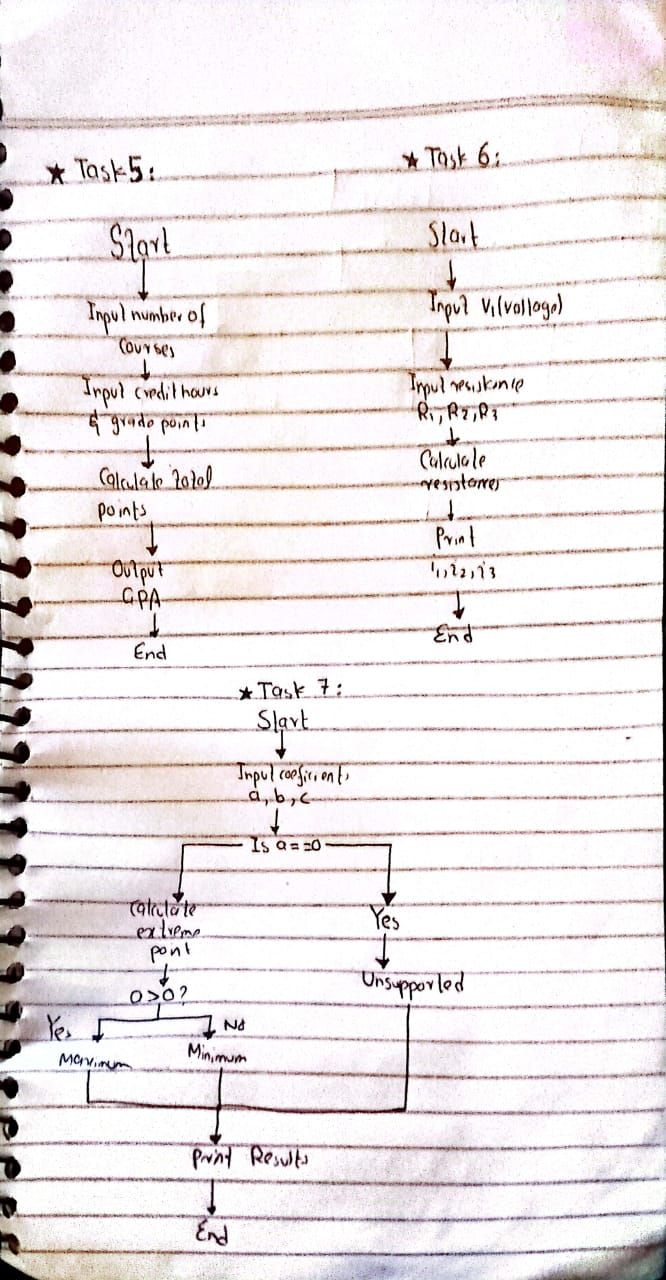 ★ Task 5:
Start
Input number of
Courses
Input credit hours
& grade points
Calculate total
points
Output
GPA
End
★ Task 6:
Start
Input V1(voltage)
Input resistance
R1, R2, R3
Calculate
resistances
Print
i1, i2, i3
End
★ Task 7:
Start
Input coefficients
a, b, c
Is a==0
Calculate
extreme
point
0>0?
Yes
No
Maximum
Minimum
Yes
Unsupported
Print Results
End